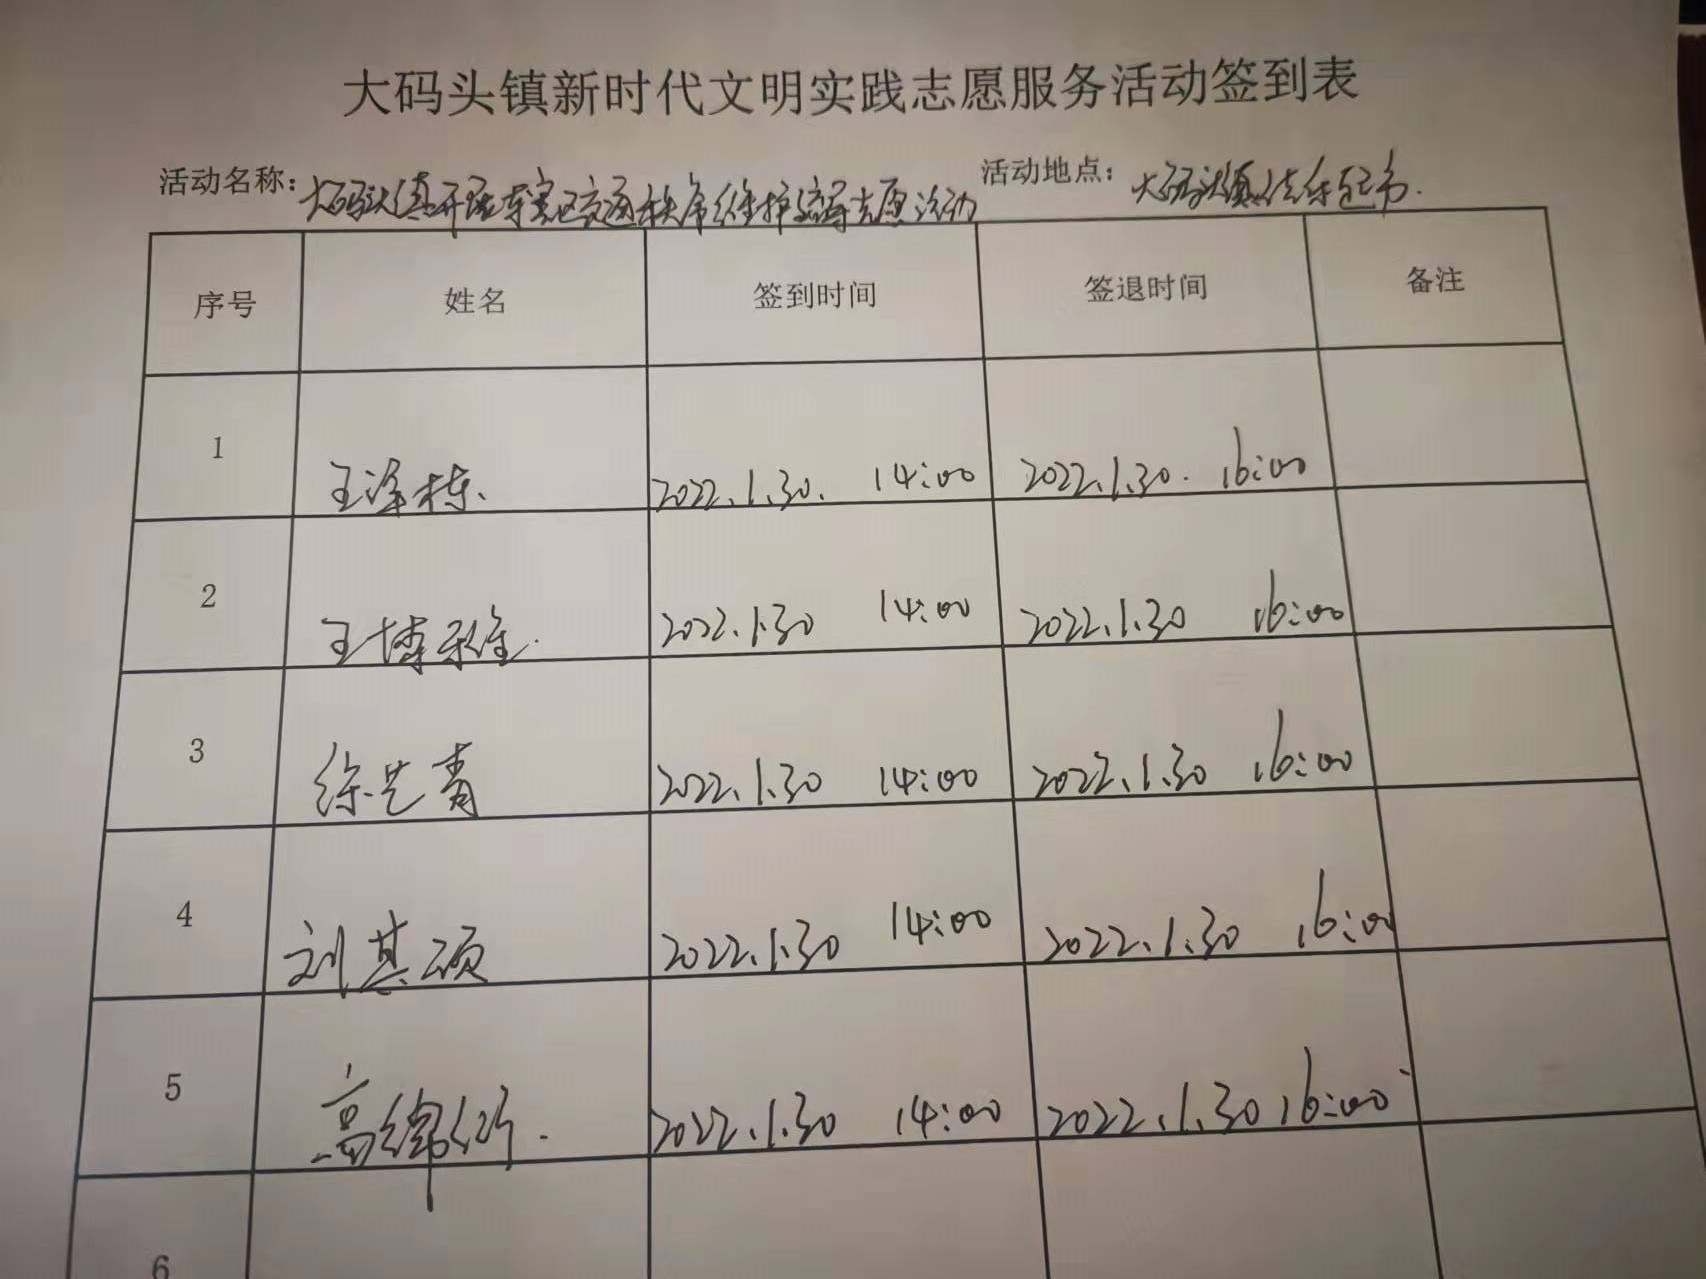 大码头镇新时代文明实践志愿服务活动签到表
活动名称：大码头镇开展车辖区交通秩序维护疏导志愿活动 活动地点：大码头镇
序号 姓名 签到时间 签退时间 备注
1 王泽栋、 2022.1.30. 14:00 2022.1.30. 16:00
2 王博 2022.1.30 14:00 2022.1.30 16:00
3 徐艺青 2022.1.30 14:00 2022.1.30 16:00
4 刘其硕 2022.1.30 14:00 2022.1.30 16:00
5 高绵 2022.1.30 14:00 2022.1.30 16:00
6